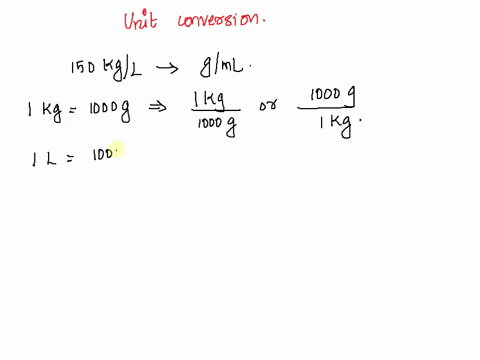 Unit conversion.
150 kg/L → g/mL.
1 Kg = 1000g ⇒ 1 Kg / 1000 g or 1000 g / 1 Kg.
1 L = 100